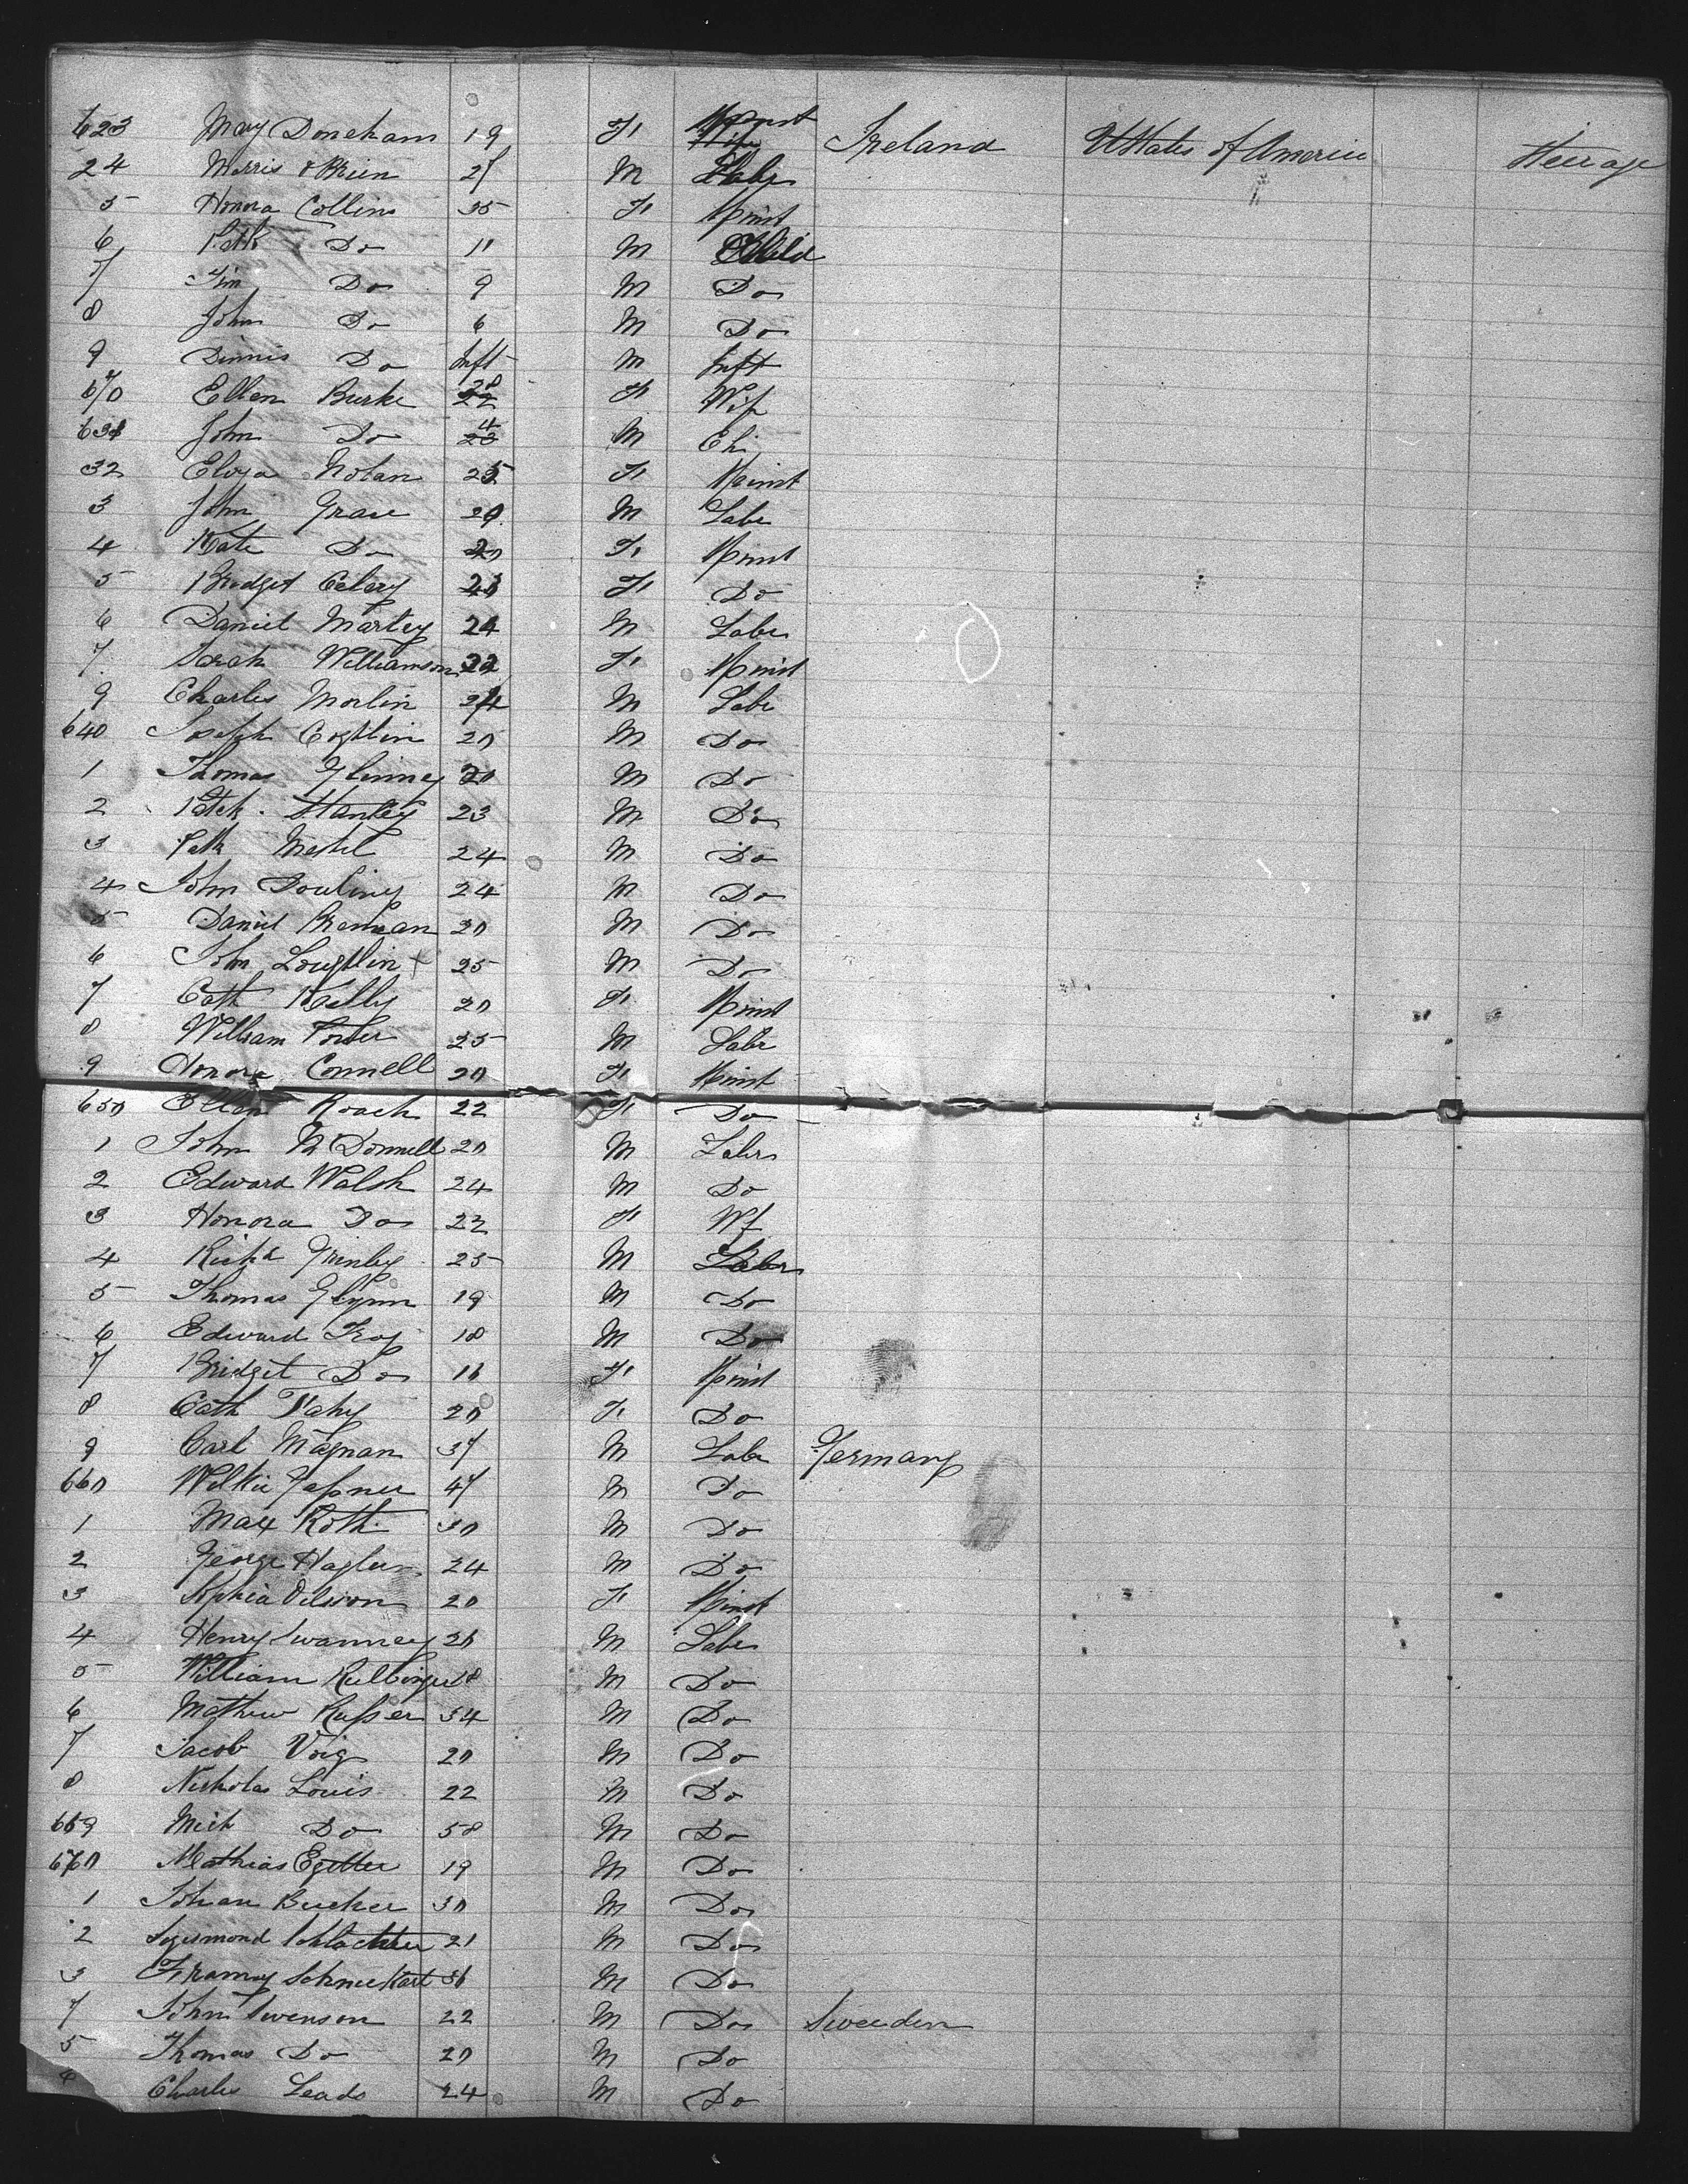 623 Mary Doneham 19 F Spinst Ireland U States of America Steerage
24 Morris O Brien 27 M Labr
5 Honora Collins 35 F Spinst
6 Patk Do 11 M Child
7 Tim Do 9 M Do
8 John Do 6 M Do
9 Dinnis Do Inft M Inft
Ellen Burke 28 F Wife
631 John Do 4 M Chi
32 Eliza Nolan 25 F Spinst
3 John Grace 29 M Labr
4 Kate Do 20 F Spinst
5 Bridget F Do
6 Daniel Martey 24 M Labr
7 Sarah Williamson 22 F Spinst
9 Charles Morlin 24 M Labr
640 Joseph Coghlin 20 M Do
1 Thomas Glinney 20 M Do
2 Patck Stanley 23 M Do
3 Patk 24 M Do
4 John Dowling 24 M Do
5 Daniel Brennan 20 M Do
6 John Loughlin 25 M Do
7 Cath Kelly 20 F Spinst
8 William Porter 25 M Labr
9 Honora Connell 20 F Spinst
650 Ellen Roach 22 F Do
1 John McDonnell 20 M Labr
2 Edward Walsh 24 M Do
3 Honora Do 22 F Wf
4 Richd 25 M Labr
5 Thomas Glynn 19 M Do
6 Edward Troy 18 M Do
7 Bridget Do 16 F Spinst
8 Cath Vahy 20 F Do
9 Carl Magnan 37 M Labr Germany
660 47 M Do
1 Max Roth 30 M Do
2 George Hagler 24 M Do
3 Sophia 20 F Spinst
4 Henry Swanney 26 M Labr
5 William M Do
6 Mathew Kusser 34 M Do
7 Jacob Voig 20 M Do
8 Nicholas Louis 22 M Do
669 Mich Do 58 M Do
670 Mathias Egetter 19 M Do
1 Johan Bucher 30 M Do
2 Sigismond Schlachter 21 M Do
3 Schneckart 36 M Do
7 John Swenson 22 M Do Sweeden
5 Thomas Do 20 M Do
6 Charles Leads 24 M Do